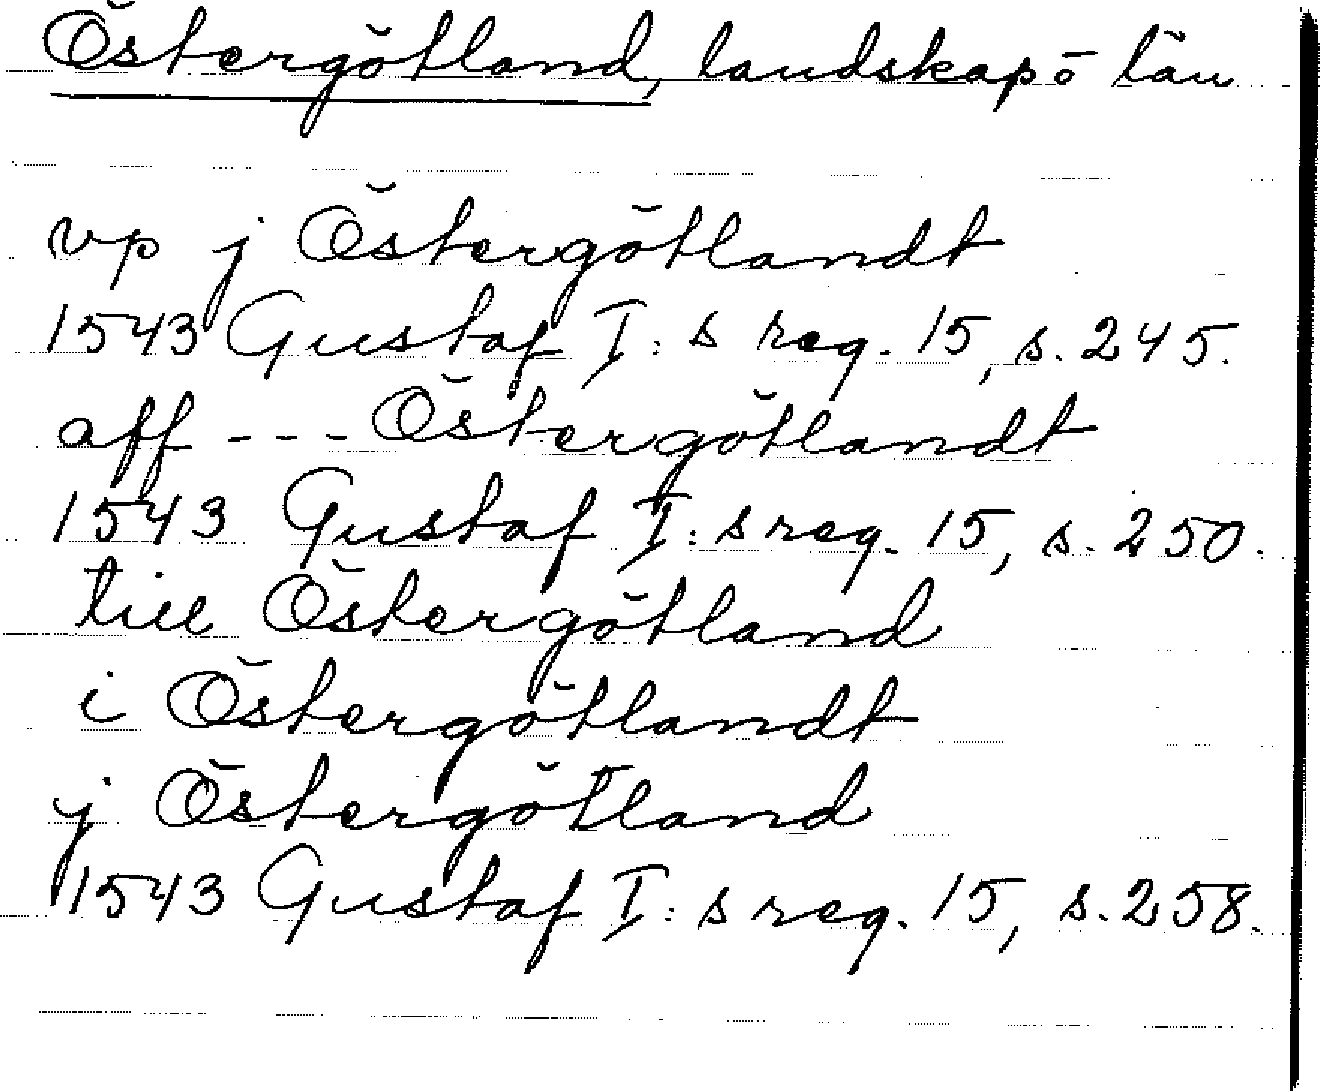 Östergötland, landskap o län
vp j Östergötlandt
1543 Gustaf I:s reg. 15, s. 245.
aff --- Östergötlandt
1543 Gustaf I:s reg. 15, s. 250.
till Östergötland
i Östergötlandt
j Östergötland
1543 Gustaf I:s reg. 15, s. 258.